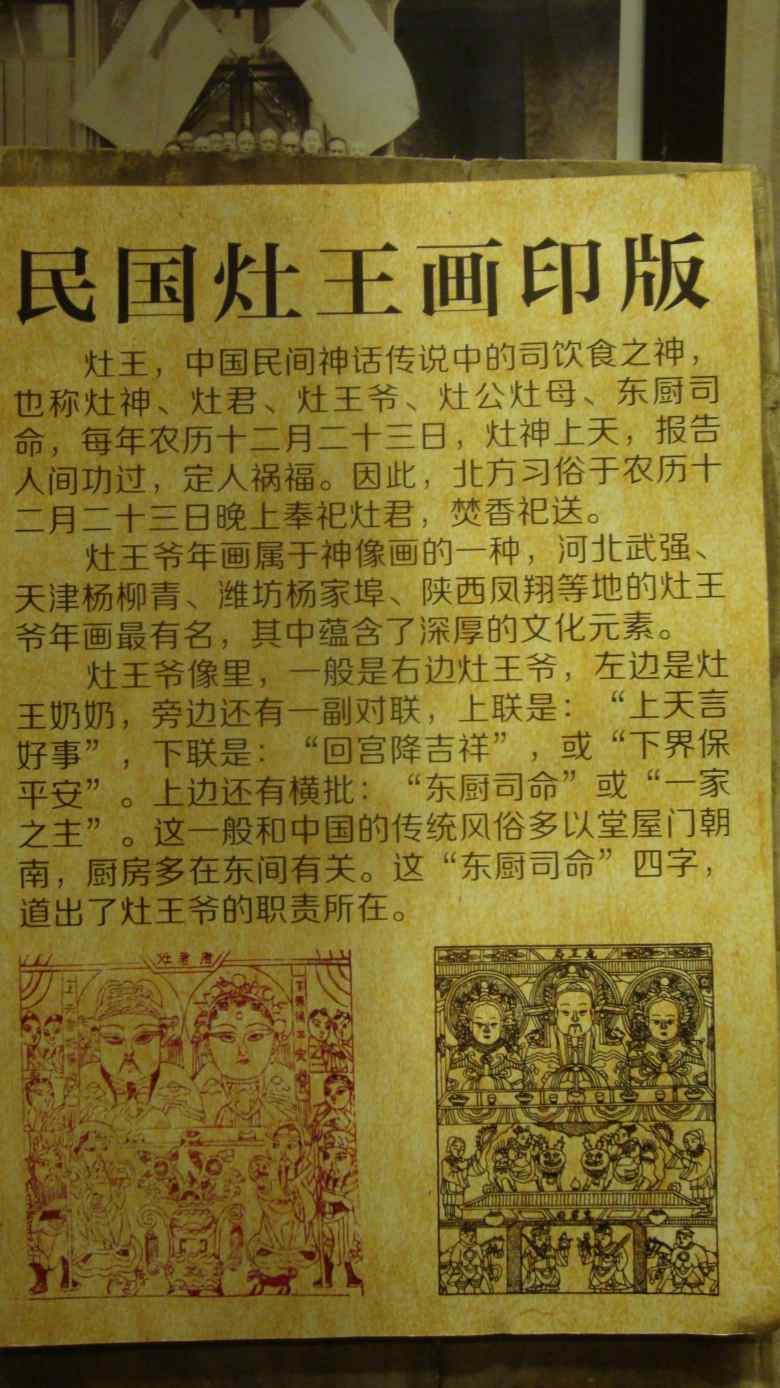 民国灶王画印版
灶王，中国民间神话传说中的司饮食之神，
也称灶神、灶君、灶王爷、灶公灶母、东厨司
命，每年农历十二月二十三日，灶神上天，报告
人间功过，定人祸福。因此，北方习俗于农历十
二月二十三日晚上奉祀灶君，焚香祀送。
灶王爷年画属于神像画的一种，河北武强、
天津杨柳青、潍坊杨家埠、陕西凤翔等地的灶王
爷年画最有名，其中蕴含了深厚的文化元素。
灶王爷像里，一般是右边灶王爷，左边是灶
王奶奶，旁边还有一副对联，上联是：“上天言
好事”，下联是：“回宫降吉祥”，或“下界保
平安”。上边还有横批：“东厨司命”或“一家
之主”。这一般和中国的传统风俗多以堂屋门朝
南，厨房多在东间有关。这“东厨司命”四字，
道出了灶王爷的职责所在。